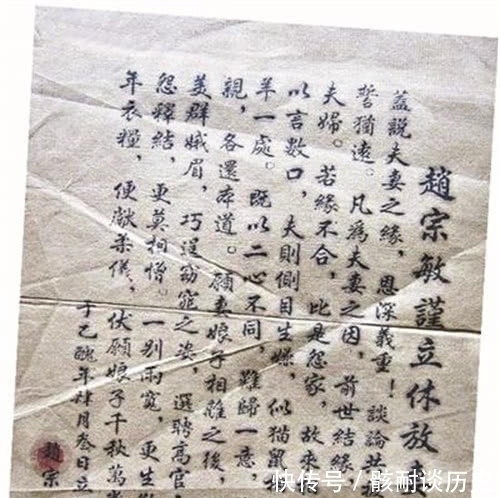 趙宗敏謹立休放
蓋說夫妻之緣，恩深義重！談論
誓猶遠。凡為夫妻之因，前世結緣
夫婦。若緣不合，比是怨家，故來
以言數口，夫則側目生嫌，似猫鼠
羊一處。既以二心不同，難歸一意，
親，各還本道。願妻娘子相離之後，
美群娥眉，巧逞窈窕之姿，選聘高官
怨釋結，更莫相憎。一別兩寬，更生
年衣糧，便獻柔儀，伏願娘子千秋萬
于乙醜年肆月叁日立
趙宗
快传号/骸耐谈历